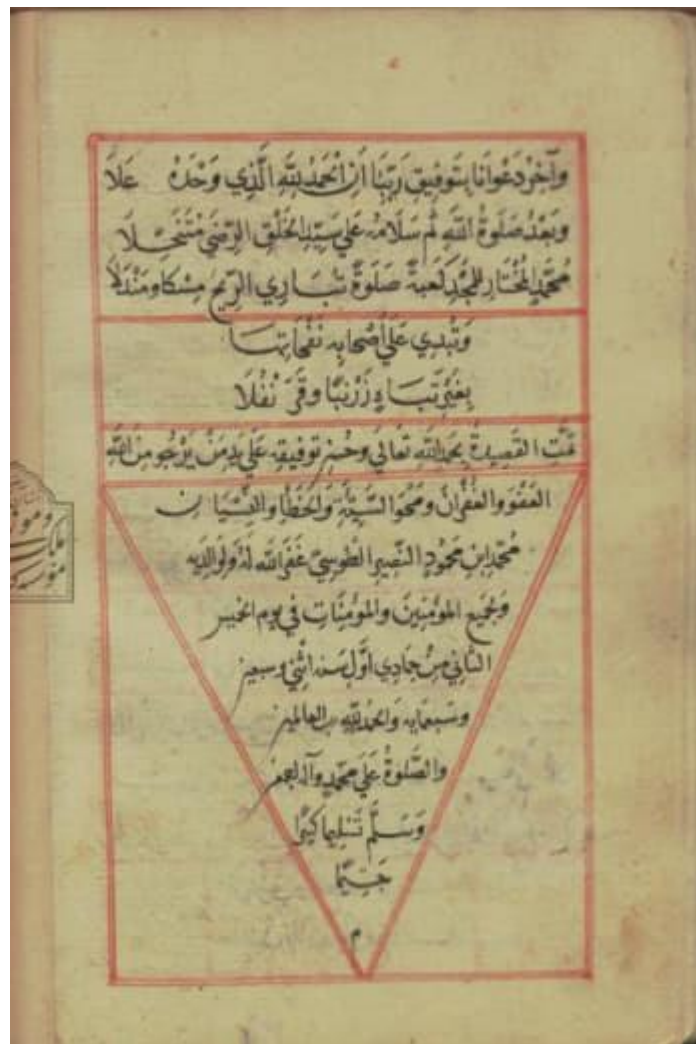 وَآخِرُ دَعْوَانَا بِتَوْفِيقِ رَبِّنَا أَنِ الْحَمْدُ لِلَّهِ الَّذِي وَحْدَهُ عَلَا
وَبَعْدُ صَلَوةُ اللَّهِ ثُمَّ سَلَامُهُ عَلَي سَيِّدِ الْخَلْقِ الرِّضَي مُتَنَخِّلَا
مُحَمَّدٍ الْمُخْتَارِ لِلْمَجْدِ كَعْبَةً صَلَوةً تُبَارِي الرِّيحَ مِسْكًا وَمَنْدَلَا
وَتُبْدِي عَلَي أَصْحَابِهِ نَفَحَاتِهَا
بِغَيْرِ تَنَاهٍ زَرْنَبًا وَقَرَنْفُلَا
تَمَّتِ القَصِيدَةُ بِحَمْدِ اللَّهِ تَعَالَي وَحُسْنِ تَوْفِيقِهِ عَلَي يَدِ مَنْ يَرْجُو مِنَ اللَّهِ
العَفْوَ وَالغُفْرَانَ وَمَحْوَ السَّيِّئَةِ وَالخَطَإِ وَالنِّسْيَانِ
مُحَمَّدِ ابْنِ مَحْمُودٍ النَّصِيرِ الطُّوسِيِّ غَفَرَ اللَّهُ لَهُ وَلِوَالِدَيْهِ
وَلِجَمِيعِ المُؤْمِنِينَ وَالمُؤْمِنَاتِ فِي يَوْمِ الخميس
الثَّانِي مِنْ جمَادِي اَوَّل سَنَه اثْنَي وَسَبعين
وَسَبعمايه وَالحَمْدُ لِلَّهِ رب العالمين
وَالصَّلوةُ عَلَي مُحَمَّدٍ وَآلِه اجمعين
وَسَلَّمَ تَسْلِيمًا كَثِيرًا
م